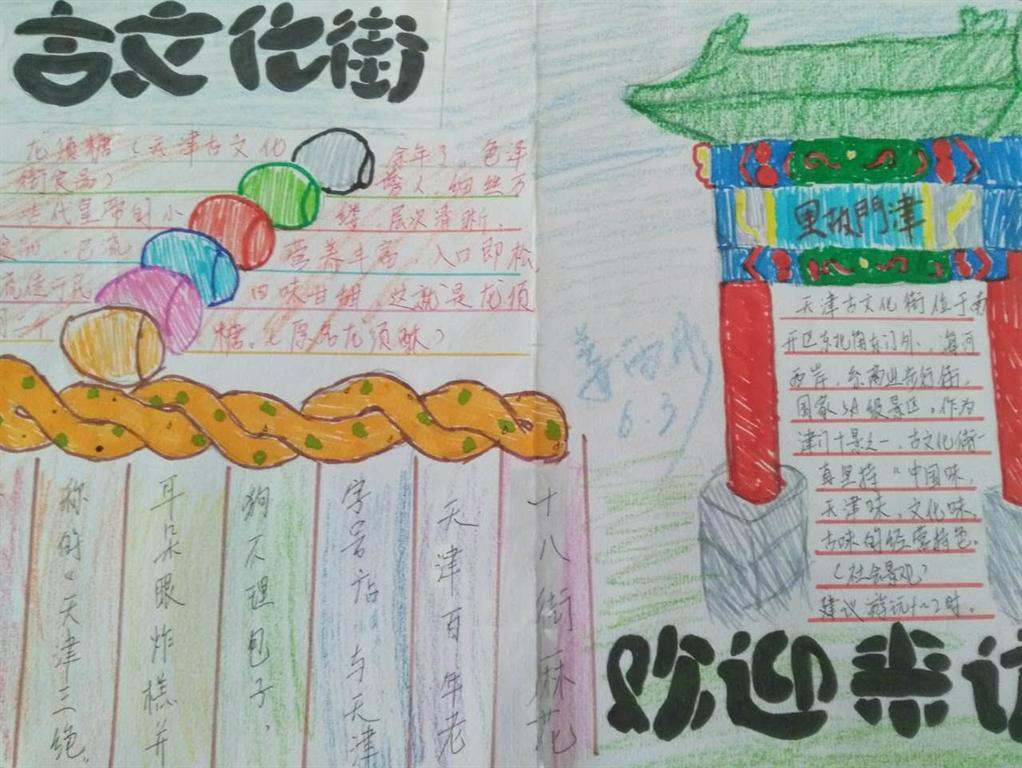 言文化街
龙须糖（天津古文化
街食品）
古代皇帝的小
余年了，色泽
人，细丝万
缕，层次清晰，
营养丰富，入口即松
回味甘甜，这就是龙须
糖。（原名龙须酥）
十八街麻花
天津百年老
字号店，与天津
狗不理包子，
耳朵眼炸糕并
称的“天津三绝。
里故門津
天津古文化街位于南
开区东北角东门外，海河
西岸，系商业步行街，
国家5A级景区。作为
津门十景之一，古文化街一
直坚持“中国味，
天津味，文化味，
古味的经营特色。
（社会景观）
建议游玩1~2时。
6.3
欢迎来访